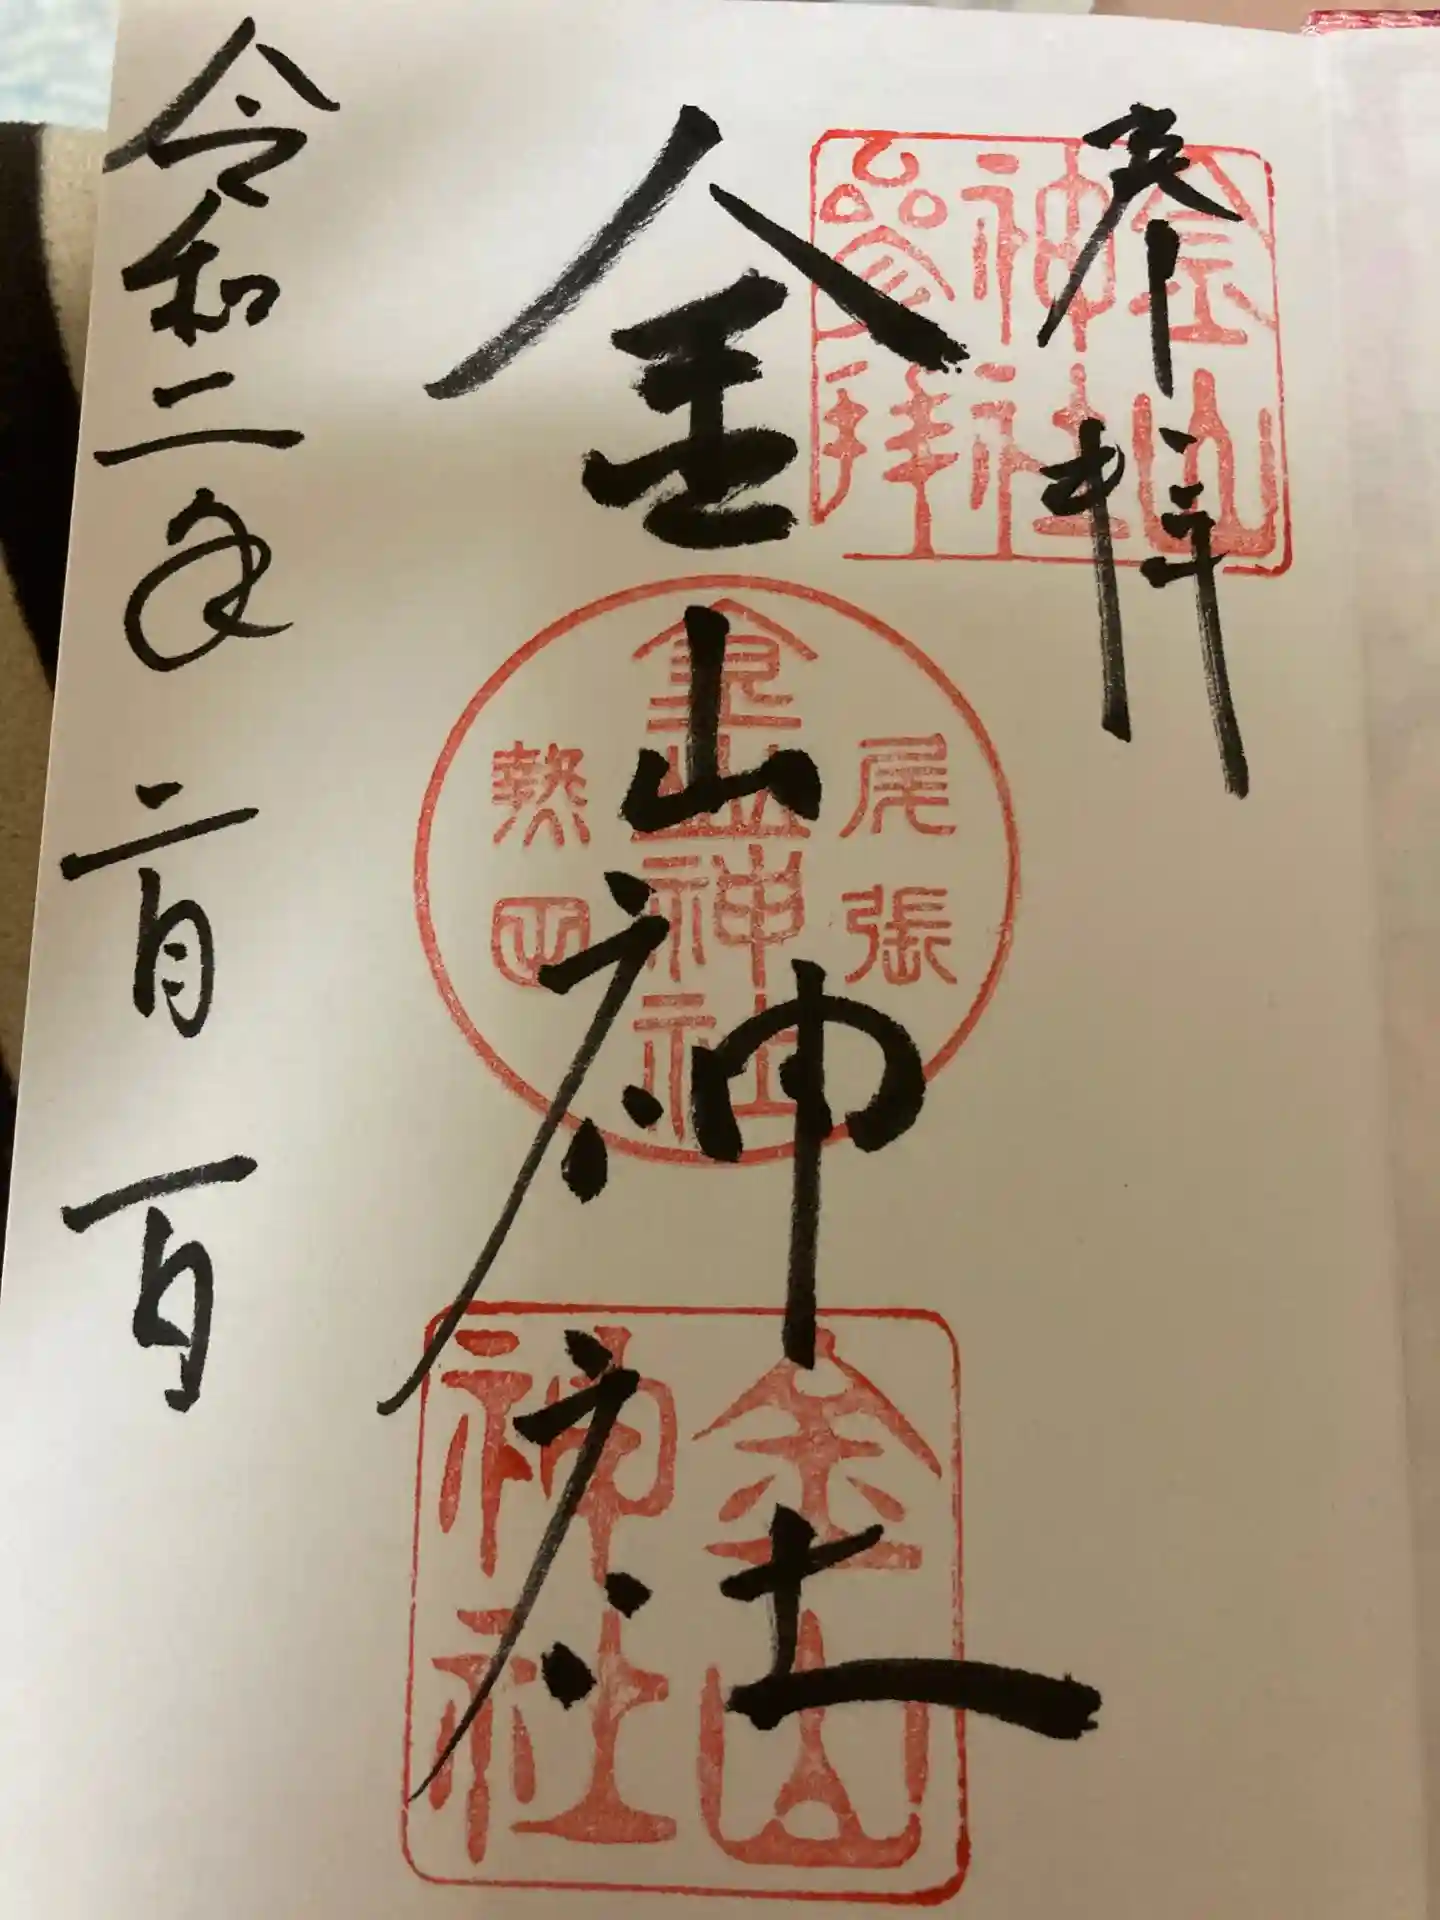 奉拝
金山
神社
参拝
金山神社
尾張
金山神社
熱田
金山
神社
令和二年二月一日